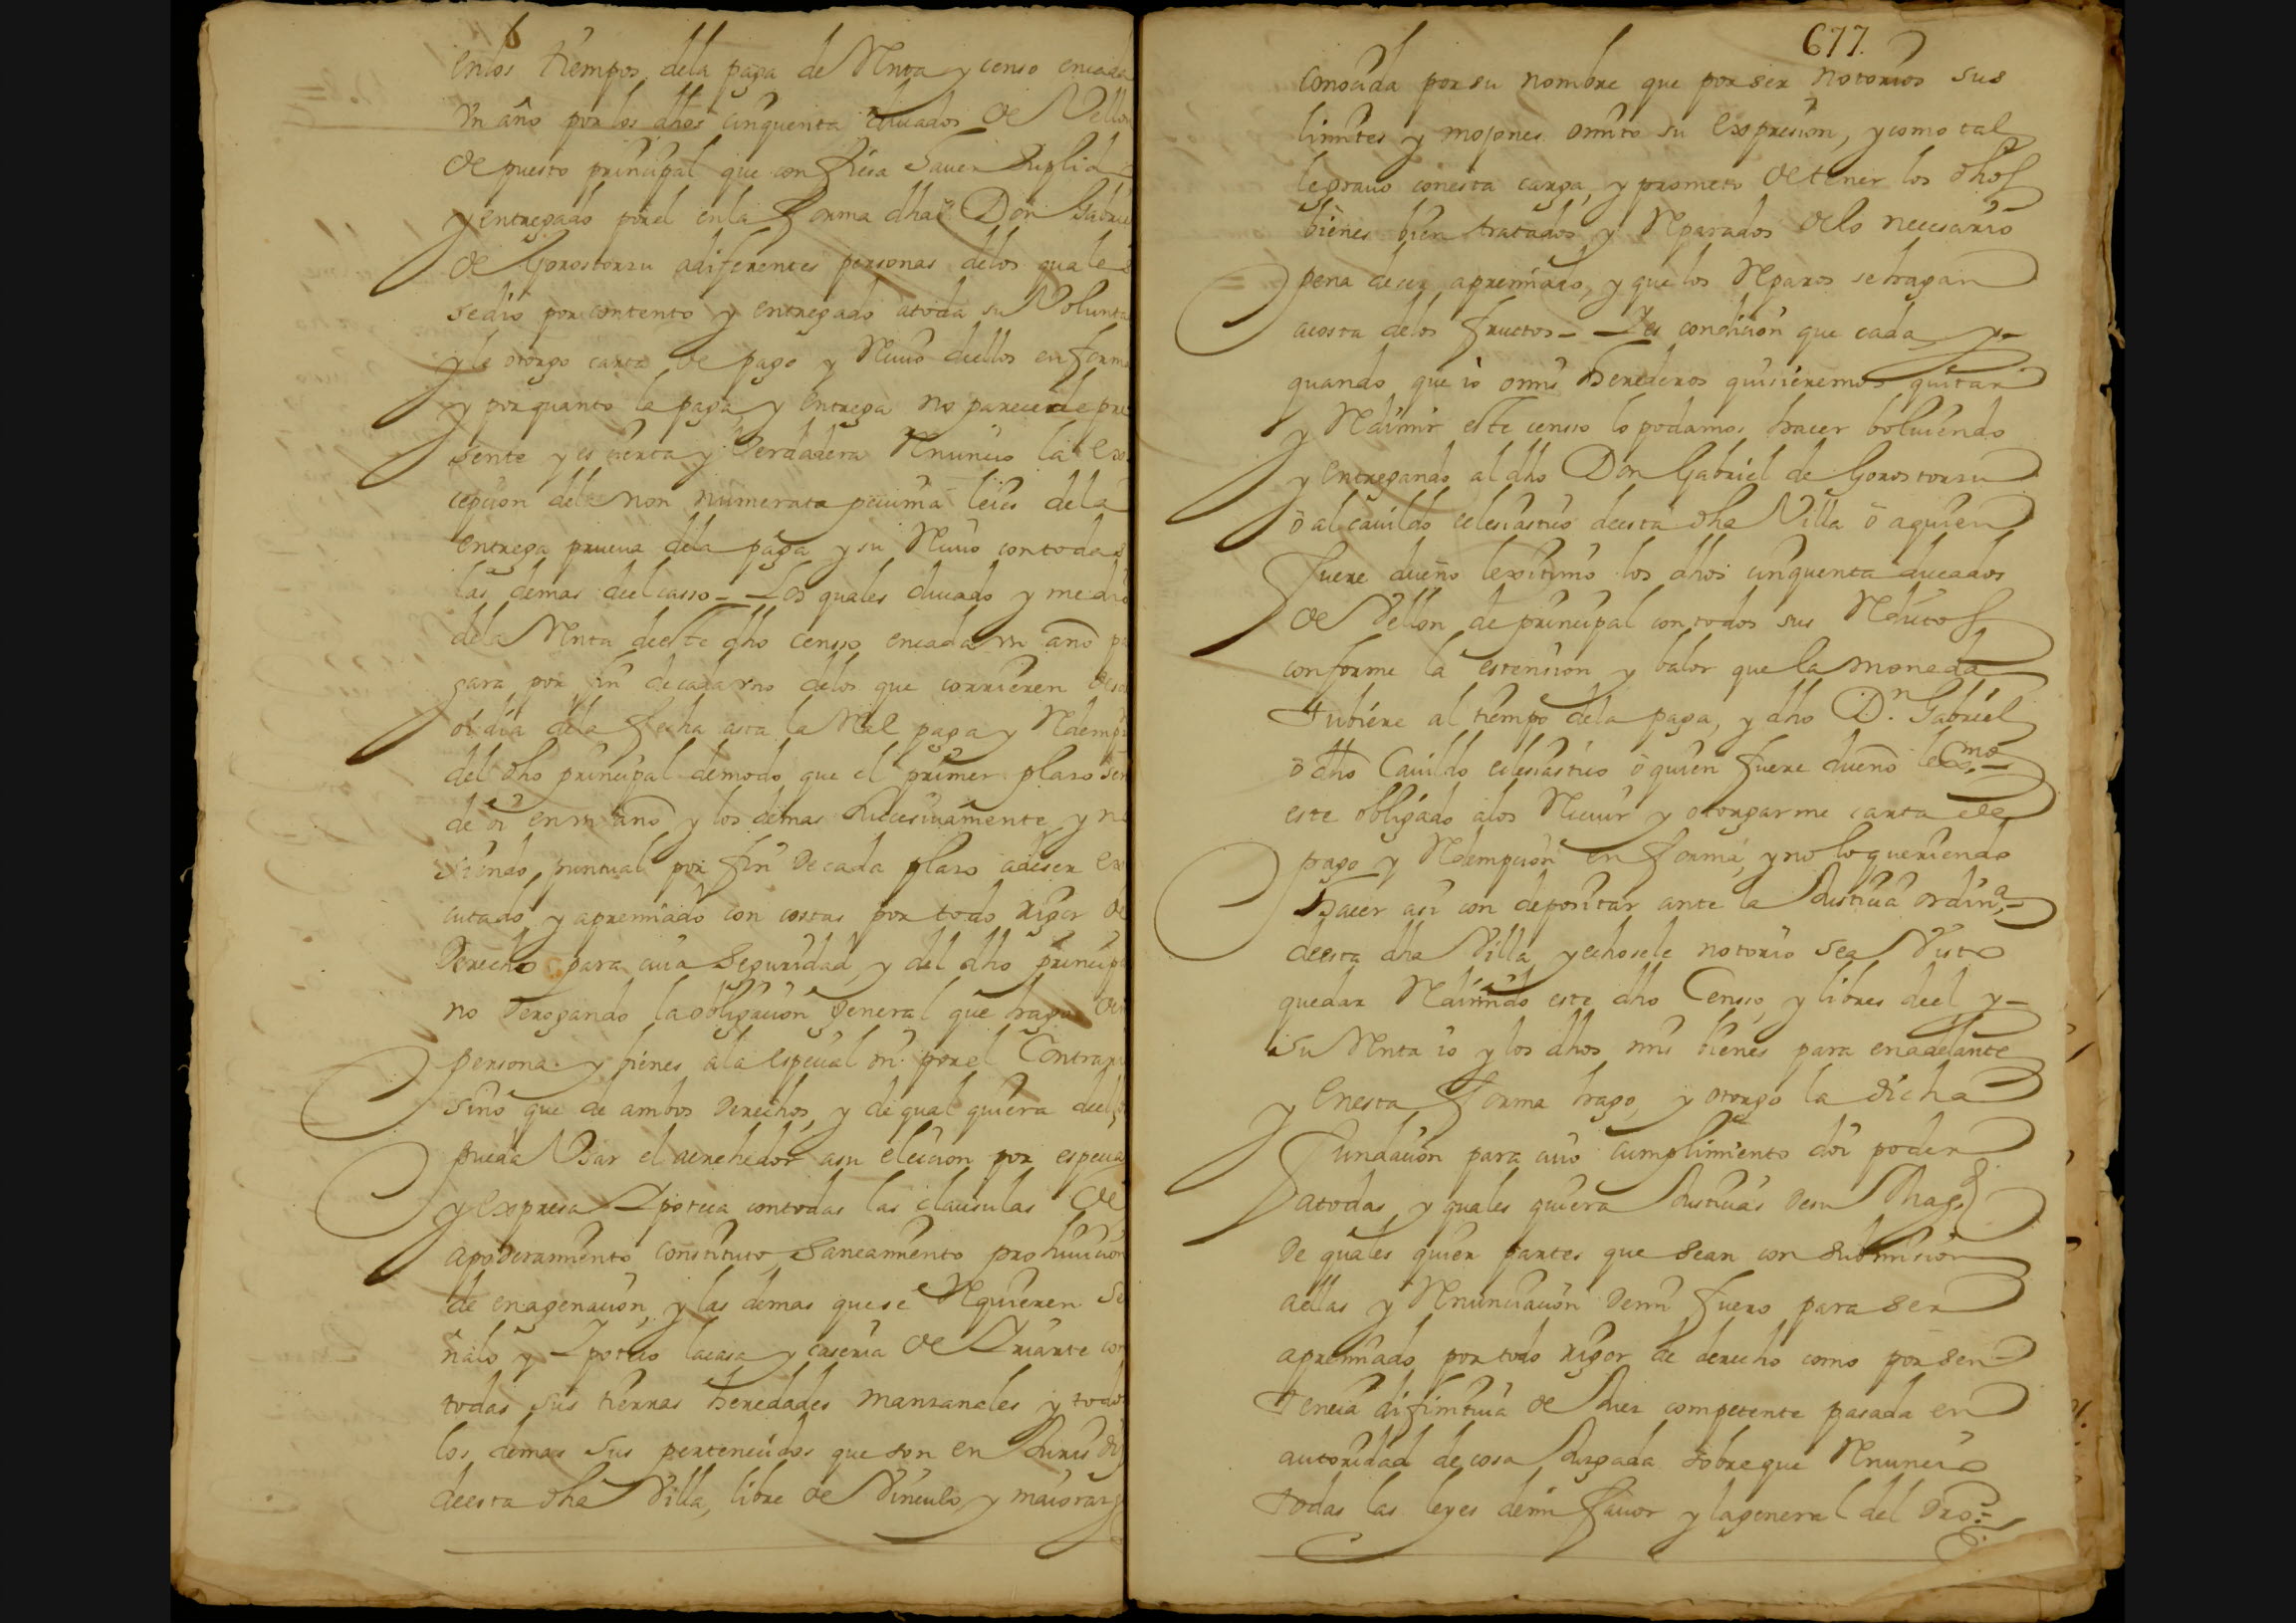 en los tiempos dela paga de Renta y censo encada
Vn año por los dhos cinquenta ducados de Vellon
de puesto principal que confiesa hauer Suplid
y entregado porel enla forma dha Don Gabriel
de Gorostorzu adiferentes personas delos quales
sedio por contento y entregado atoda su Volunta
y le otorgo carta de pago y Reciuo deellos en forma
y porquanto la paga y entrega no parece de pre
sente y es cierta y Verdadera Renuncio la ex
cepcion dela non numerata pecunia leies dela
entrega prueua dela paga y su Reciuo contodas
las demas deelcasso_ Los quales ducado y medio
dela Renta deeste dho censso encada vn año pa
gara por fin decada vno delos que corrieren desde
oi dia dela fecha asta la Real paga y Redempz
del dho principal demodo que el primer plazo sera
de oi en vn año y los demas Sucesiuamente y no
siendo puntual por fin De cada plazo adeser exe
cutado y apremiado con costas por todo rigor de
Derecho para cuia Seguridad y del dho principal
no Derogando la obligacion general que hago de mi
persona y bienes ala especial ni por el Contrario
sino que de ambos Derechos, y de qual quiera deellos
pueda Vsar el acrehedor asu eleccion por especial
y expresa Ypoteca contodas las clausulas de
apoderamiento constituto Saneamiento prohiuicion
de enagenacion, y las demas que se Requieren Se
ñalo y Ypoteco lacasa y caseria de Vriarte con
todas sus tierras heredades manzanales y todos
los demas sus pertenecidos que son en Jurisdiz
deesta dha Villa, libre de Vinculo y maiorazgo
677.
Conocida por su nombre que por ser notorios sus
limites y mojones omito su expresion, y como tal
le grauo conesta carga, y prometo de tener los dhos
bienes bien tratados y Reparados delo necesario
pena deser apremiado, y que los Reparos se hagan
acosta delos fructos_ Y es condicion que cada y
quando que io omis herederos quisieremos quitar
y Redimir este censso lo podamos hacer boluiendo
y entregando al dho Don Gabriel de Gorostorzu
o al cauildo eclesiastico deesta dha Villa o aquien
fuere dueño lexitimo los dhos cinquenta ducados
de Vellon de principal con todos sus Reditos
conforme la estension y balor que la moneda
tubiere al tiempo dela paga, y dho Dn. Gabriel
o dho Cauildo eclesiastico o quien fuere dueño lexmo
este obligado alos Reciuir y otorgarme carta de
pago y Redempcion en forma, y no lo queriendo
hacer asi con depositar ante la Justicia ordina
deesta dha Villa y echosele notorio sea Visto
quedar Redimido este dho Censso, y libres deel y
su Renta io y los dhos mis bienes para enadelante
y enesta forma hago, y otorgo la dicha
fundacion para cuio cumplimiento doi poder
atodas y quales quiera Justicias Desu Magd
De quales quier partes que sean con submision
aellas y Renunciacion Demi fuero para ser
apremiado por todo rigor de derecho como por sen
tencia difinitiua de Juez competente pasada en
autoridad de cosa Juzgada sobre que Renuncio
todas las leyes demi fauor y la general del Dro